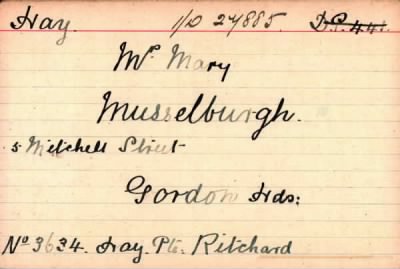 Hay. 1/D 27885. D.P. 441.
Mrs Mary
Musselburgh.
5 Mitchell Street
Gordon Hds:
No 3634. Hay. Pte. Ritchard